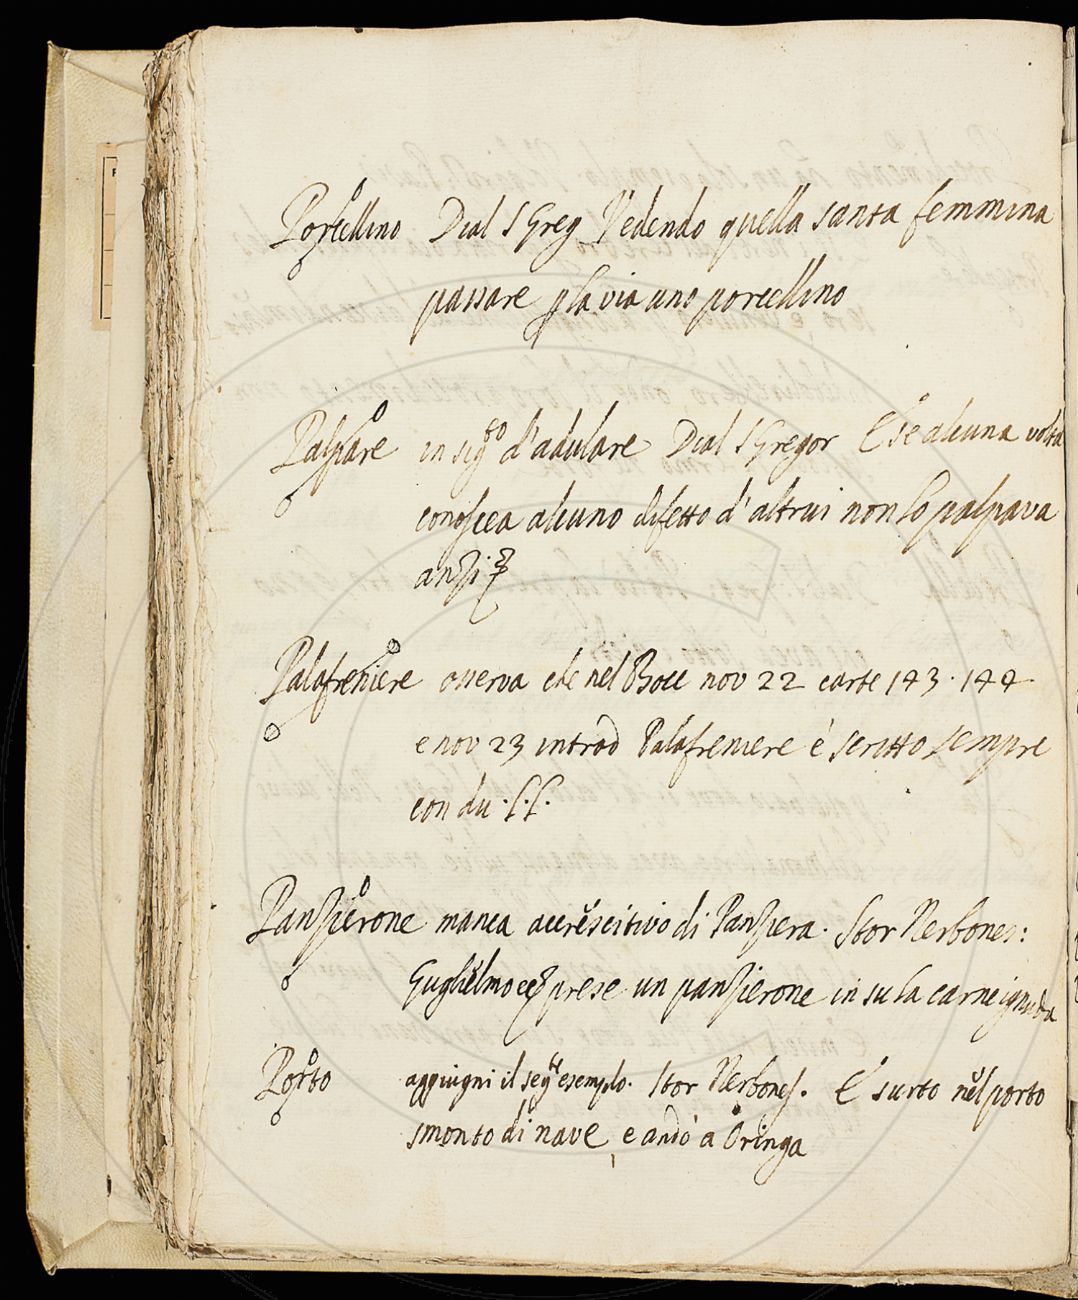 Porcellino Dial S Greg Vedendo quella santa femmina
passare p la via uno porcellino
Palpare in sigto d'adulare Dial S Gregor E se alcuna volta
conoscea alcuno difetto d'altrui non lo palpava
anzi &
Palafreniere osserva che nel Bocc nov 22 carte 143. 144
e nov 23 introd Palafreniere è scritto sempre
con du .f.f.
Panzierone manca accrescitivo di Panziera. Stor Nerbones:
Guglielmo ec prese un panzierone in su la carne ignuda
Porto aggiugni il segte esemplo. Stor Nerbones. E surto nel porto
smontò di nave, e andò a Oringa